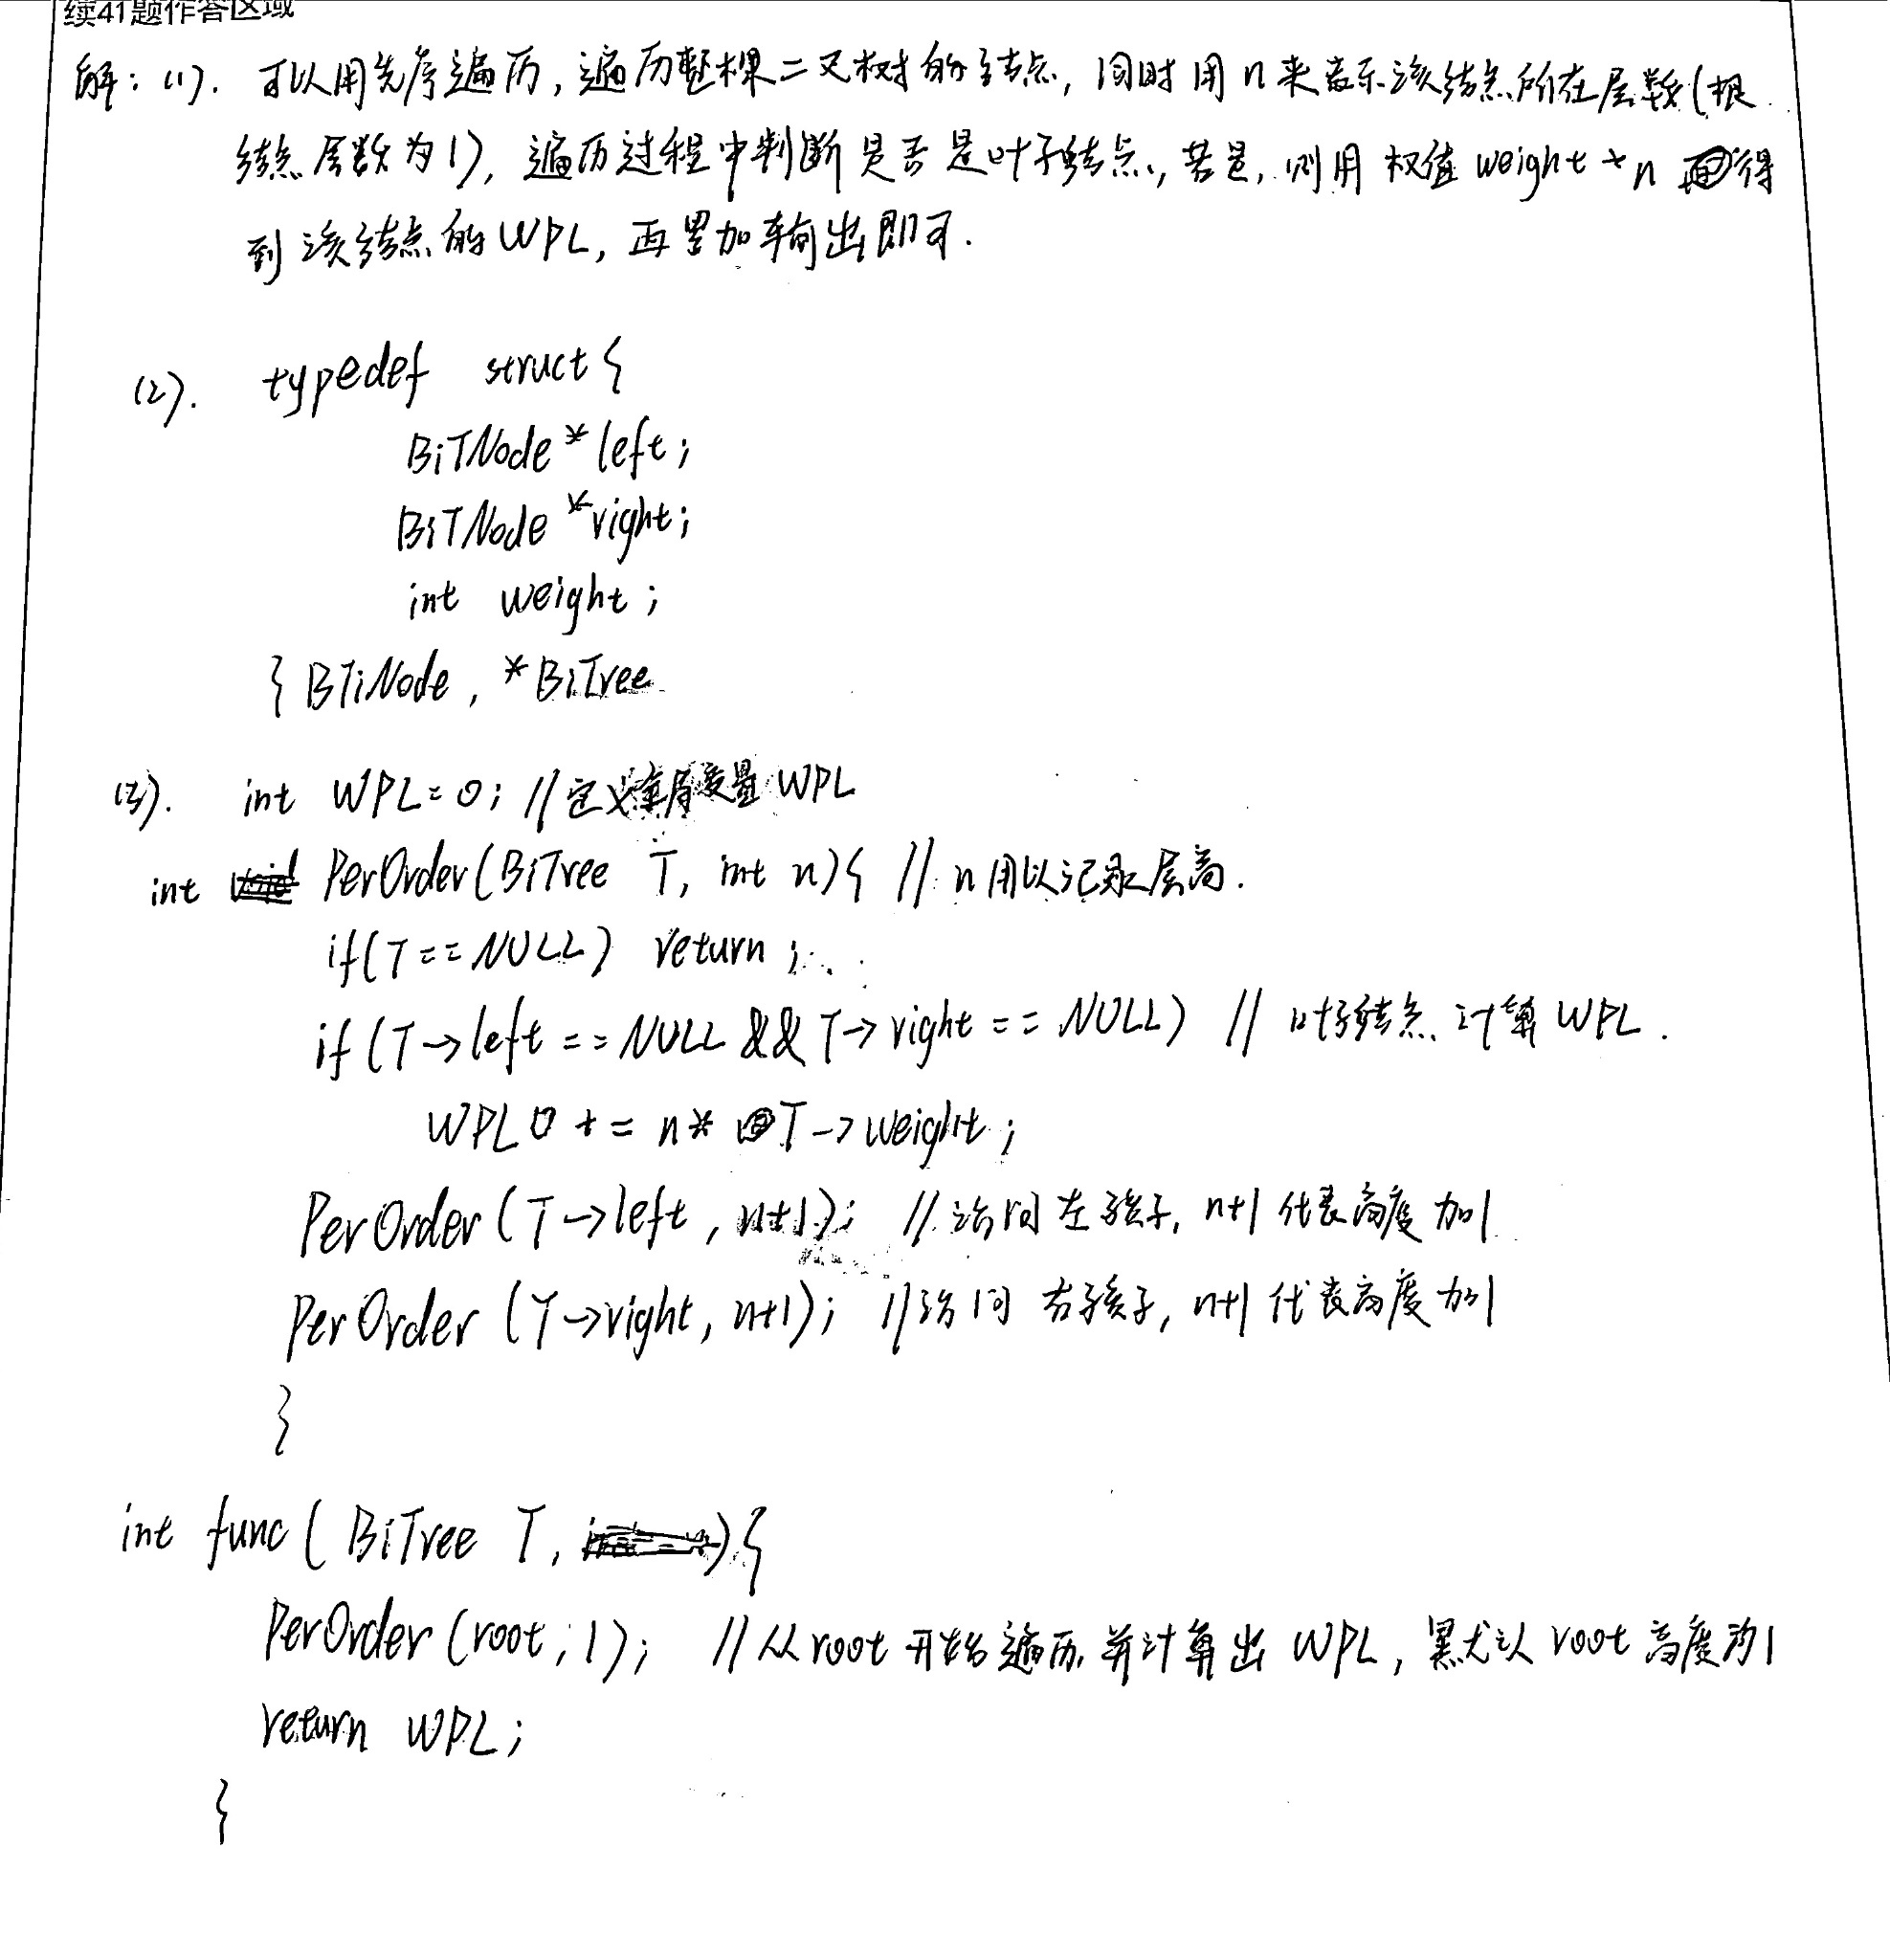 续41题作答区域
解：(1). 可以用先序遍历，遍历整棵二叉树的结点，同时用n来表示该结点所在层数(根
结点层数为1)，遍历过程中判断是否是叶子结点，若是，则用权值weight*n 得
到该结点的WPL，再累加输出即可.
(2). typedef struct{
BiTNode *left;
BiTNode *right;
int weight;
}BTiNode, *BiTree
(3). int WPL=0; //定义全局变量WPL
int PerOrder(BiTree T, int n){ //n用以记录层高.
if(T==NULL) return;
if(T->left==NULL && T->right==NULL) //叶子结点计算WPL.
WPL += n* T->weight;
PerOrder(T->left, n+1); //访问左孩子, n+1代表高度加1
PerOrder(T->right, n+1); //访问右孩子, n+1代表高度加1
}
int func(BiTree T, ){
PerOrder(root, 1); //从root开始遍历并计算出WPL, 默认root高度为1
return WPL;
}